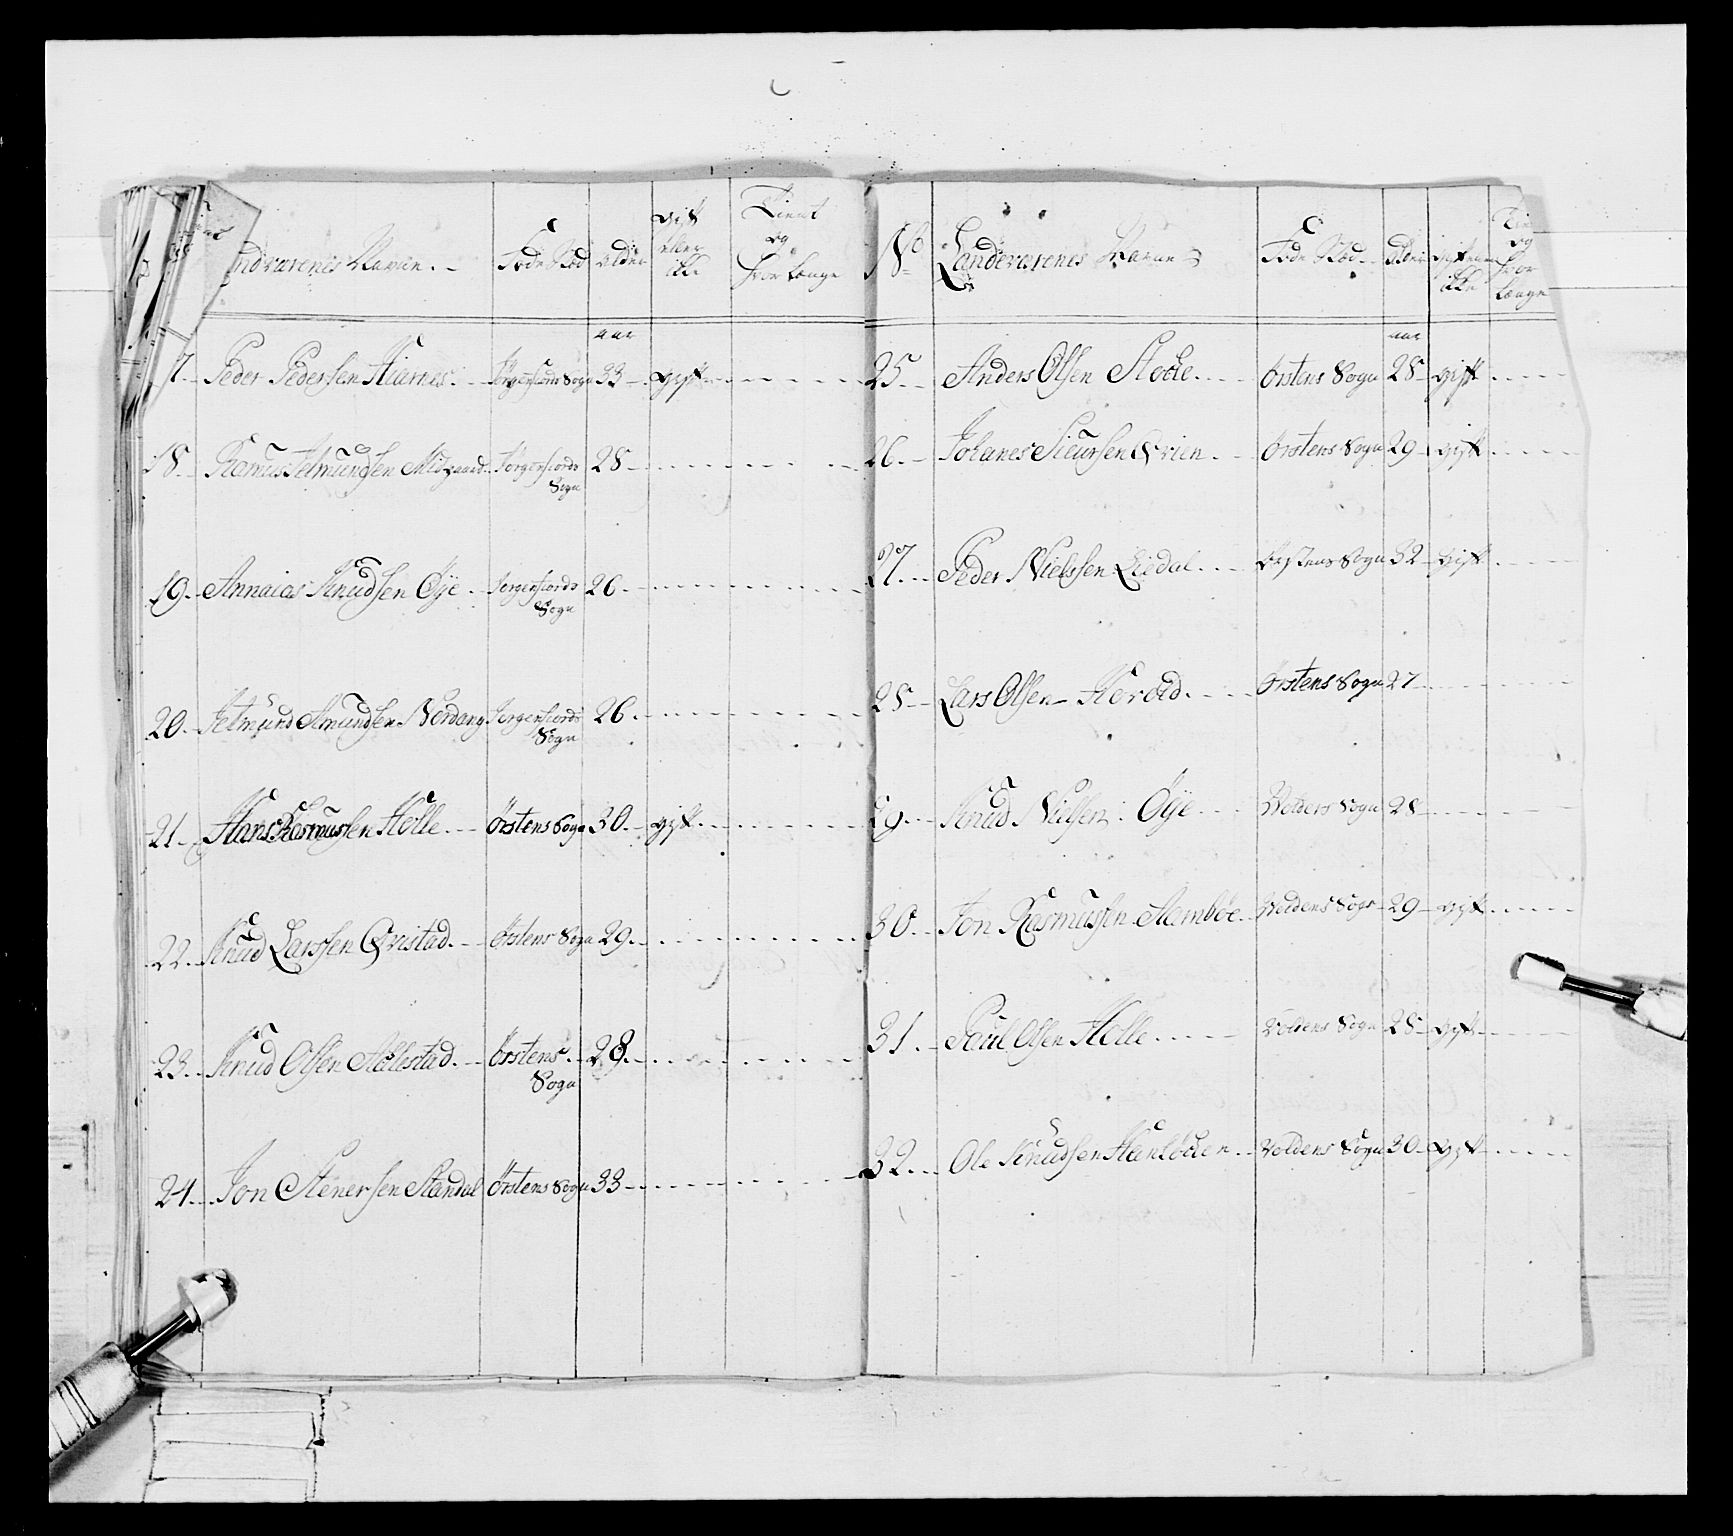 Landværenes Navne
Føde Stæd
Alder
Gift
eller
ikke
Tient
og
hvor længe
aar
17. Peder Pedersen Kiarnes. Jørgenfiords Sogn 33 gift
18. Rasmus Jetmundsen Midgaard Jørgenfiords
Sogn 28
19. Annaias Knudsen Øÿe. Jørgenfiords
Sogn 26
20. Jetmund Amundsen Nordang Jørgenfiords
Sogn 26
21. Hans Rasmussen Holle Ørstens Sogn 30 gift
22. Knud Larssen Qvistad. Ørstens Sogn 29
23. Knud Olsen Aalestad. Ørstens
Sogn 28
24. Jon Stenersen Standal Ørstens Sogn 33
No
Landeværenes Navne
Føde Stæd
Alder
Gift eller
ikke
og
hvor
længe
aar
25. Anders Olsen Ørstens Sogn 28 gift
26. Johanes Siursen Brien. Ørstens Sogn 29 gift
27. Peder Nielssen Liedal Ørstens Sogn 32 gift
28. Lars Olsen Hovdd. Ørstens Sogn 27
29. Knud Nielsen Øÿe Voldens Sogn 28
30. Jon Rasmussen Aambøe Voldens Sogn 29 gift
31. Paul Olsen Holle Voldens Sogn 28 gift
32. Ole Knudsen Voldens Sogn 30 gift